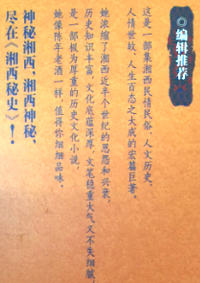 ◎编辑推荐
这是一部集湘西民情民俗、人文历史、
人情世故、人生百态之大成的宏篇巨著。
她浓缩了湘西近半个世纪的恩怨和兴衰。
历史知识丰富,文化底蕴深厚,文笔稳重大气又不失细腻,
是一部极为厚重的历史文化小说,
她像陈年老酒一样,值得你细细品味。
神秘湘西,湘西神秘,
尽在《湘西秘史》!